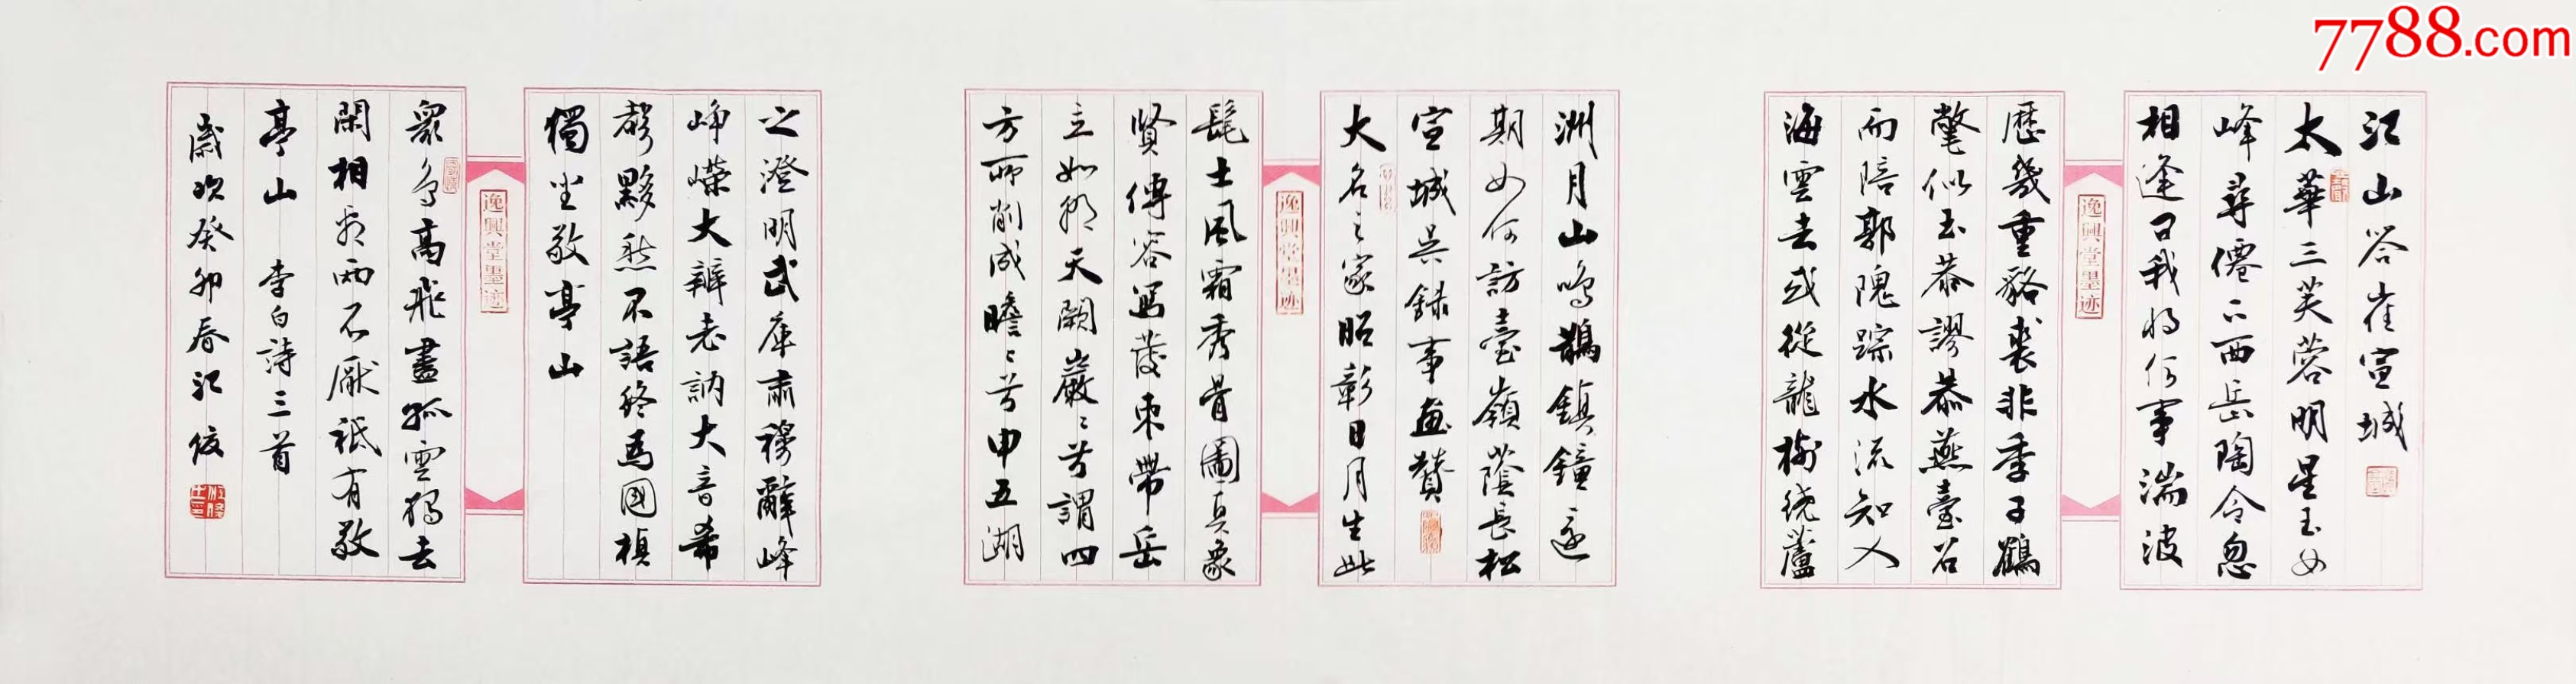 7788.com
江山答崔宣城
太華三芙蓉明星玉女
峰尋僊下西岳陶令忽
相逢曰我將何事湍波
歷幾重貉裘非季子鶴
氅似王恭謬忝燕臺召
而陪郭隗踪水流知入
海雲去或從龍樹繞蘆
洲月山鳴鵲鎮鐘還
期如何訪臺嶺蔭長松
宣城吳錄事畫贊
大名之家昭彰日月生此
髦士風霜秀骨圖真象
賢傳容寫髮束帶岳
立如朝天闕巖〻兮謂四
方所削成瞻〻兮申五湖
之澄明武庫肅穆辭峰
崢嶸大辯若訥大音希
聲黟然不語終為國楨
獨坐敬亭山
眾鳥高飛盡孤雲獨去
閑相看兩不厭祇有敬
亭山 李白詩三首
歲次癸卯春江俊
逸興堂墨迹
逸興堂墨迹
逸興堂墨迹